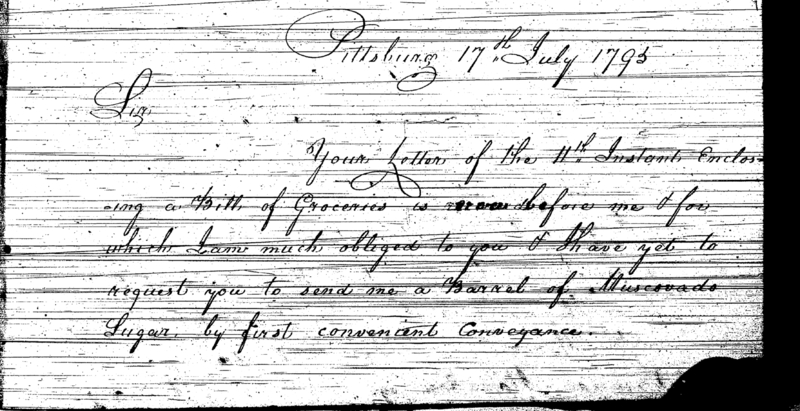 Pittsburg 17th July 1795
Sir
Your Letter of the 11th Instant Enclos-
-ing a Bill of Groceries is now before me & for
which I am much obliged to you & I have yet to
request you to send me a Barrel of Muscovado
Sugar by first convenient Conveyance.